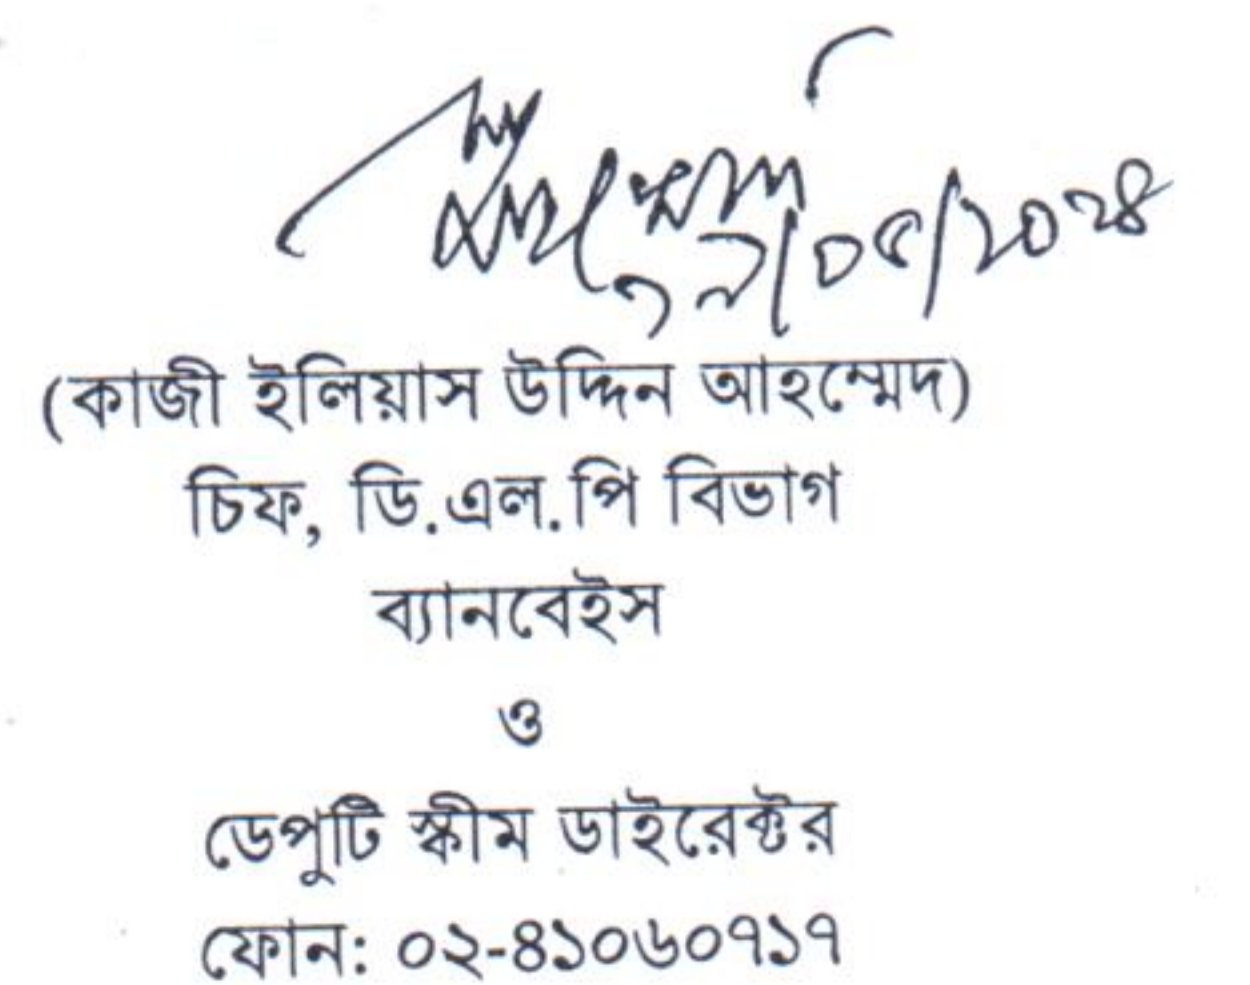 (কাজী ইলিয়াস উদ্দিন আহম্মেদ)
চিফ, ডি.এল.পি বিভাগ
ব্যানবেইস
ও
ডেপুটি স্কীম ডাইরেক্টর
ফোন: ০২-৪১০৬০৭১৭